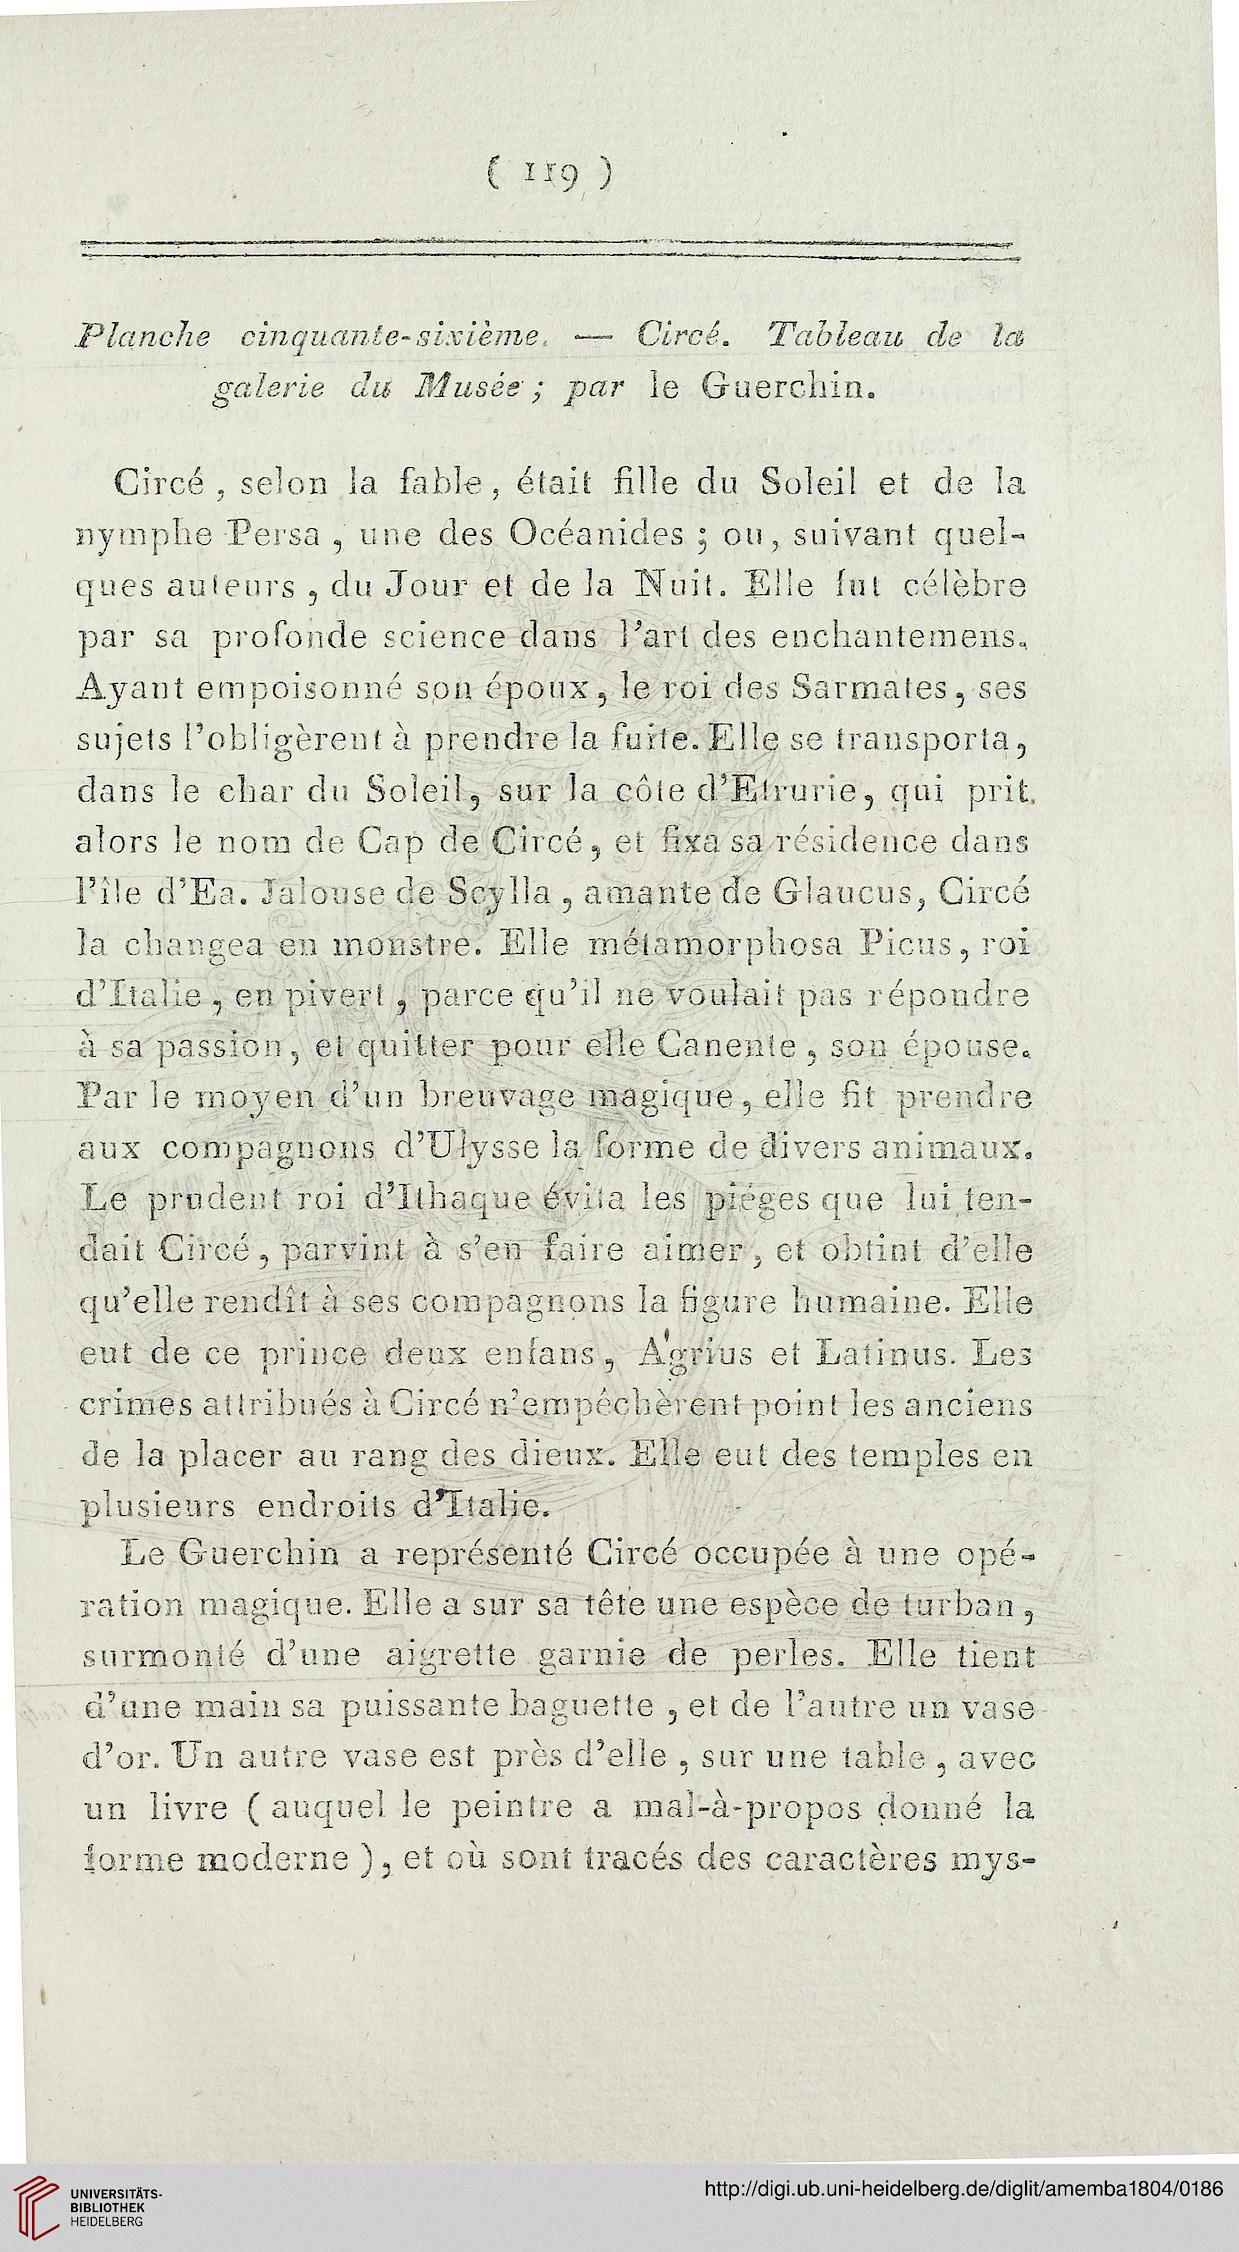 ( 119 )
Planche cinquante-sixième. — Circé. Tableau de la
galerie du Musée ; par le Guerchin.
Circé , selon la fable , était fille du Soleil et de la
nymphe Persa , une des Océanides ; ou, suivant quel-
ques auteurs , du Jour et de la Nuit. Elle fut célèbre
par sa profonde science dans l'art des enchantemens.
Ayant empoisonné son époux , le roi des Sarmates , ses
sujets l'obligèrent à prendre la fuite. Elle se transporta ,
dans le char du Soleil , sur la côte d'Etrurie, qui prit
alors le nom de Cap de Circé , et fixa sa résidence dans
l'île d'Ea. Jalouse de Scylla , amante de Glaucus, Circé
la changea en monstre. Elle métamorphosa Picus , roi
d'Italie , en pivert , parce qu'il ne voulait pas répondre
à sa passion , et quitter pour elle Canente , son épouse.
Par le moyen d'un breuvage magique , elle fit prendre
aux compagnons d'Ulysse la forme de divers animaux.
Le prudent roi d'Ithaque évita les piéges que lui ten-
dait Circé , parvint à s'en faire aimer , et obtint d'elle
qu'elle rendît à ses compagnons la figure humaine. Elle
eut de ce prince deux enfans , Agrius et Latinus. Les
crimes attribués à Circé n'empêchèrent point les anciens
de la placer au rang des dieux. Elle eut des temples en
plusieurs endroits d'Italie.
Le Guerchin a représenté Circé occupée à une opé-
ration magique. Elle a sur sa tête une espèce de turban ,
surmonté d'une aigrette garnie de perles. Elle tient
d'une main sa puissante baguette , et de l'autre un vase
d'or. Un autre vase est près d'elle , sur une table , avec
un livre ( auquel le peintre a mal-à-propos donné la
forme moderne ) , et où sont tracés des caractères mys-
UNIVERSITÄTS-
BIBLIOTHEK
HEIDELBERG
http://digi.ub.uni-heidelberg.de/diglit/amemba1804/0186